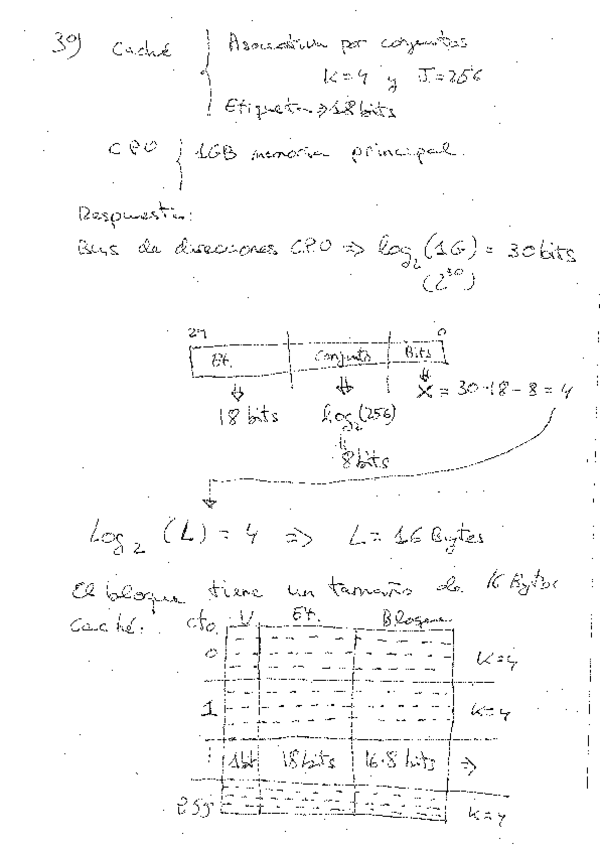 39) Caché Asociativa por conjuntos
K=4 y J=256
Etiqueta => 18 bits
CPU 1GB memoria principal.
Respuesta:
Bus de direcciones CPU => log2 (1G) = 30 bits
(2^30)
29 0
Et. Conjunto Bits
X = 30-18-8 = 4
18 bits log2(256)
8 bits
Log2 (L) = 4 => L = 16 Bytes
El bloque tiene un tamaño de 16 Bytes
Caché: cto. V Et. Bloque
0 K=4
1 K=4
1bit 18 bits 16·8 bits =>
255 K=4